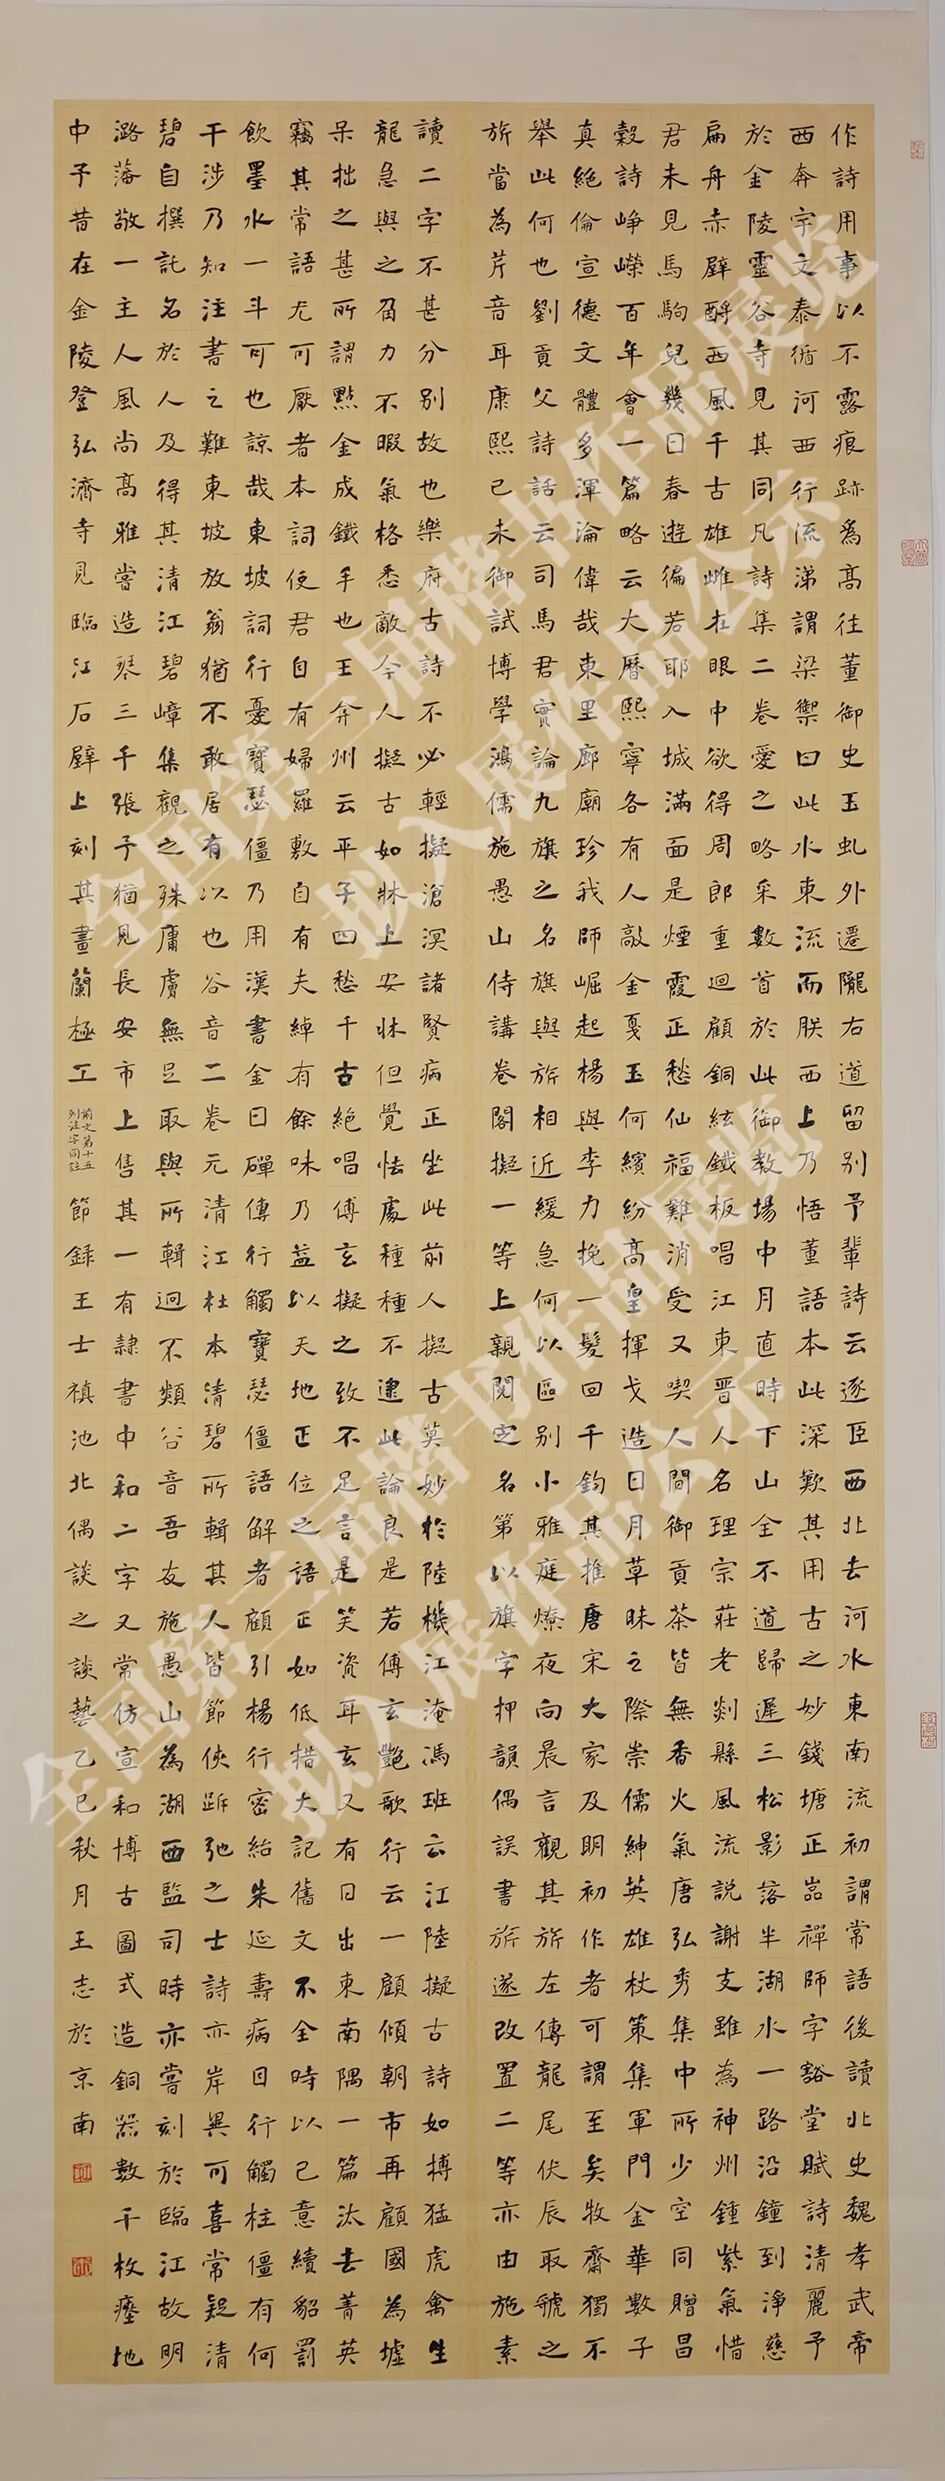 作詩用事以不露痕跡爲高往董御史玉虬外遷隴右道留別予輩詩云逐臣西北去河水東南流初謂常語後讀北史魏孝武帝
西奔宇文泰循河西行流涕謂梁禦曰此水東流而朕西上乃悟董語本此深歎其用古之妙錢塘正嵒禪師字豁堂賦詩清麗予
於金陵靈谷寺見其同凡詩集二卷愛之略采數首於此御教場中月直時下山全不道歸遲三松影落半湖水一路沿鐘到淨慈
扁舟赤壁酹西風千古雄雌在眼中欲得周郎重迴顧銅絃鐵板唱江東晉人名理宗莊老剡縣風流說謝支雖為神州鍾紫氣惜
君未見馬駒兒幾日春遊徧若耶入城滿面是煙霞正愁仙福難消受又喫人間御貢茶皆無香火氣唐弘秀集中所少空同贈昌
穀詩崢嶸百年會一篇略云大曆熙寧各有人敲金戛玉何繽紛高皇揮戈造日月草昧之際崇儒紳英雄杖策集軍門金華數子
真絕倫宣德文體多渾淪偉哉東里廊廟珍我師崛起楊與李力挽一髮回千鈞其推唐宋大家及明初作者可謂至矣牧齋獨不
舉此何也劉貢父詩話云司馬君實論九旗之名旗與旂相近緩急何以區別小雅庭燎夜向晨言觀其旂左傳龍尾伏辰取虢之
旂當為芹音耳康熙己未御試博學鴻儒施愚山侍講卷閣擬一等上親閱定名第以旗字押韻偶誤書旂遂改置二等亦由施素
讀二字不甚分別故也樂府古詩不必輕擬滄溟諸賢病正坐此前人擬古莫妙於陸機江淹馮班云江陸擬古詩如搏猛虎禽生
龍急與之角力不暇氣格悉敵今人擬古如牀上安牀但覺怯處種種不逮此論良是若傅玄艷歌行云一顧傾朝市再顧國為墟
呆拙之甚所謂點金成鐵手也王弇州云平子四愁千古絕唱傅玄擬之致不足言是笑資耳玄又有日出東南隅一篇汰去菁英
竊其常語尤可厭者本詞使君自有婦羅敷自有夫綽有餘味乃益以天地正位之語正如低措大記舊文不全時以己意續貂罰
飲墨水一斗可也諒哉東坡詞行憂寶瑟僵乃用漢書金日磾傳行觸寶瑟僵語解者顧引楊行密紿朱延壽病目行觸柱僵有何
干涉乃知注書之難東坡放翁猶不敢居有以也谷音二卷元清江杜本清碧所輯其人皆節俠跅弛之士詩亦岸異可喜常疑清
碧自撰託名於人及得其清江碧嶂集觀之殊庸膚無足取與所輯迥不類谷音吾友施愚山為湖西監司時亦嘗刻於臨江故明
潞藩敬一主人風尚高雅嘗造琴三千張予猶見長安市上售其一有隸書中和二字又常仿宣和博古圖式造銅器數千枚瘞地
中予昔在金陵登弘濟寺見臨江石壁上刻其畫蘭極工
前文第十五
列注字同註
節錄王士禎池北偶談之談藝乙巳秋月王志於京南
全国第三届楷书作品展览
拟入展作品公示
全国第三届楷书作品展览
拟入展作品公示